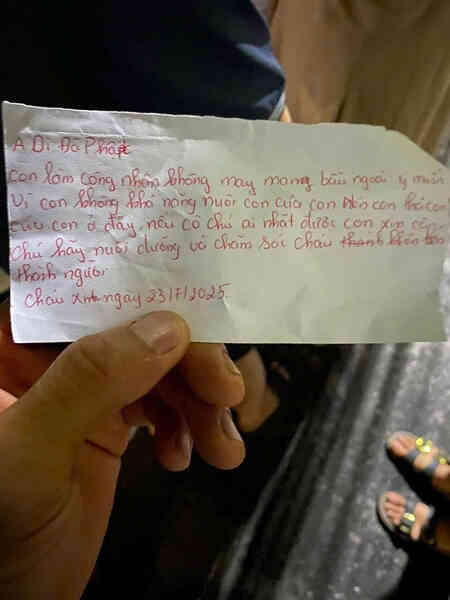 A Di Đà Phật
con làm công nhân không may mang bầu ngoài ý muốn
Vì con không khả năng nuôi con của con nên con bỏ con
của con ở đây, nếu cô chú ai nhặt được con xin cô
chú hãy nuôi dưỡng và chăm sóc cháu thành
thành người
cháu sinh ngày 23/7/2025.